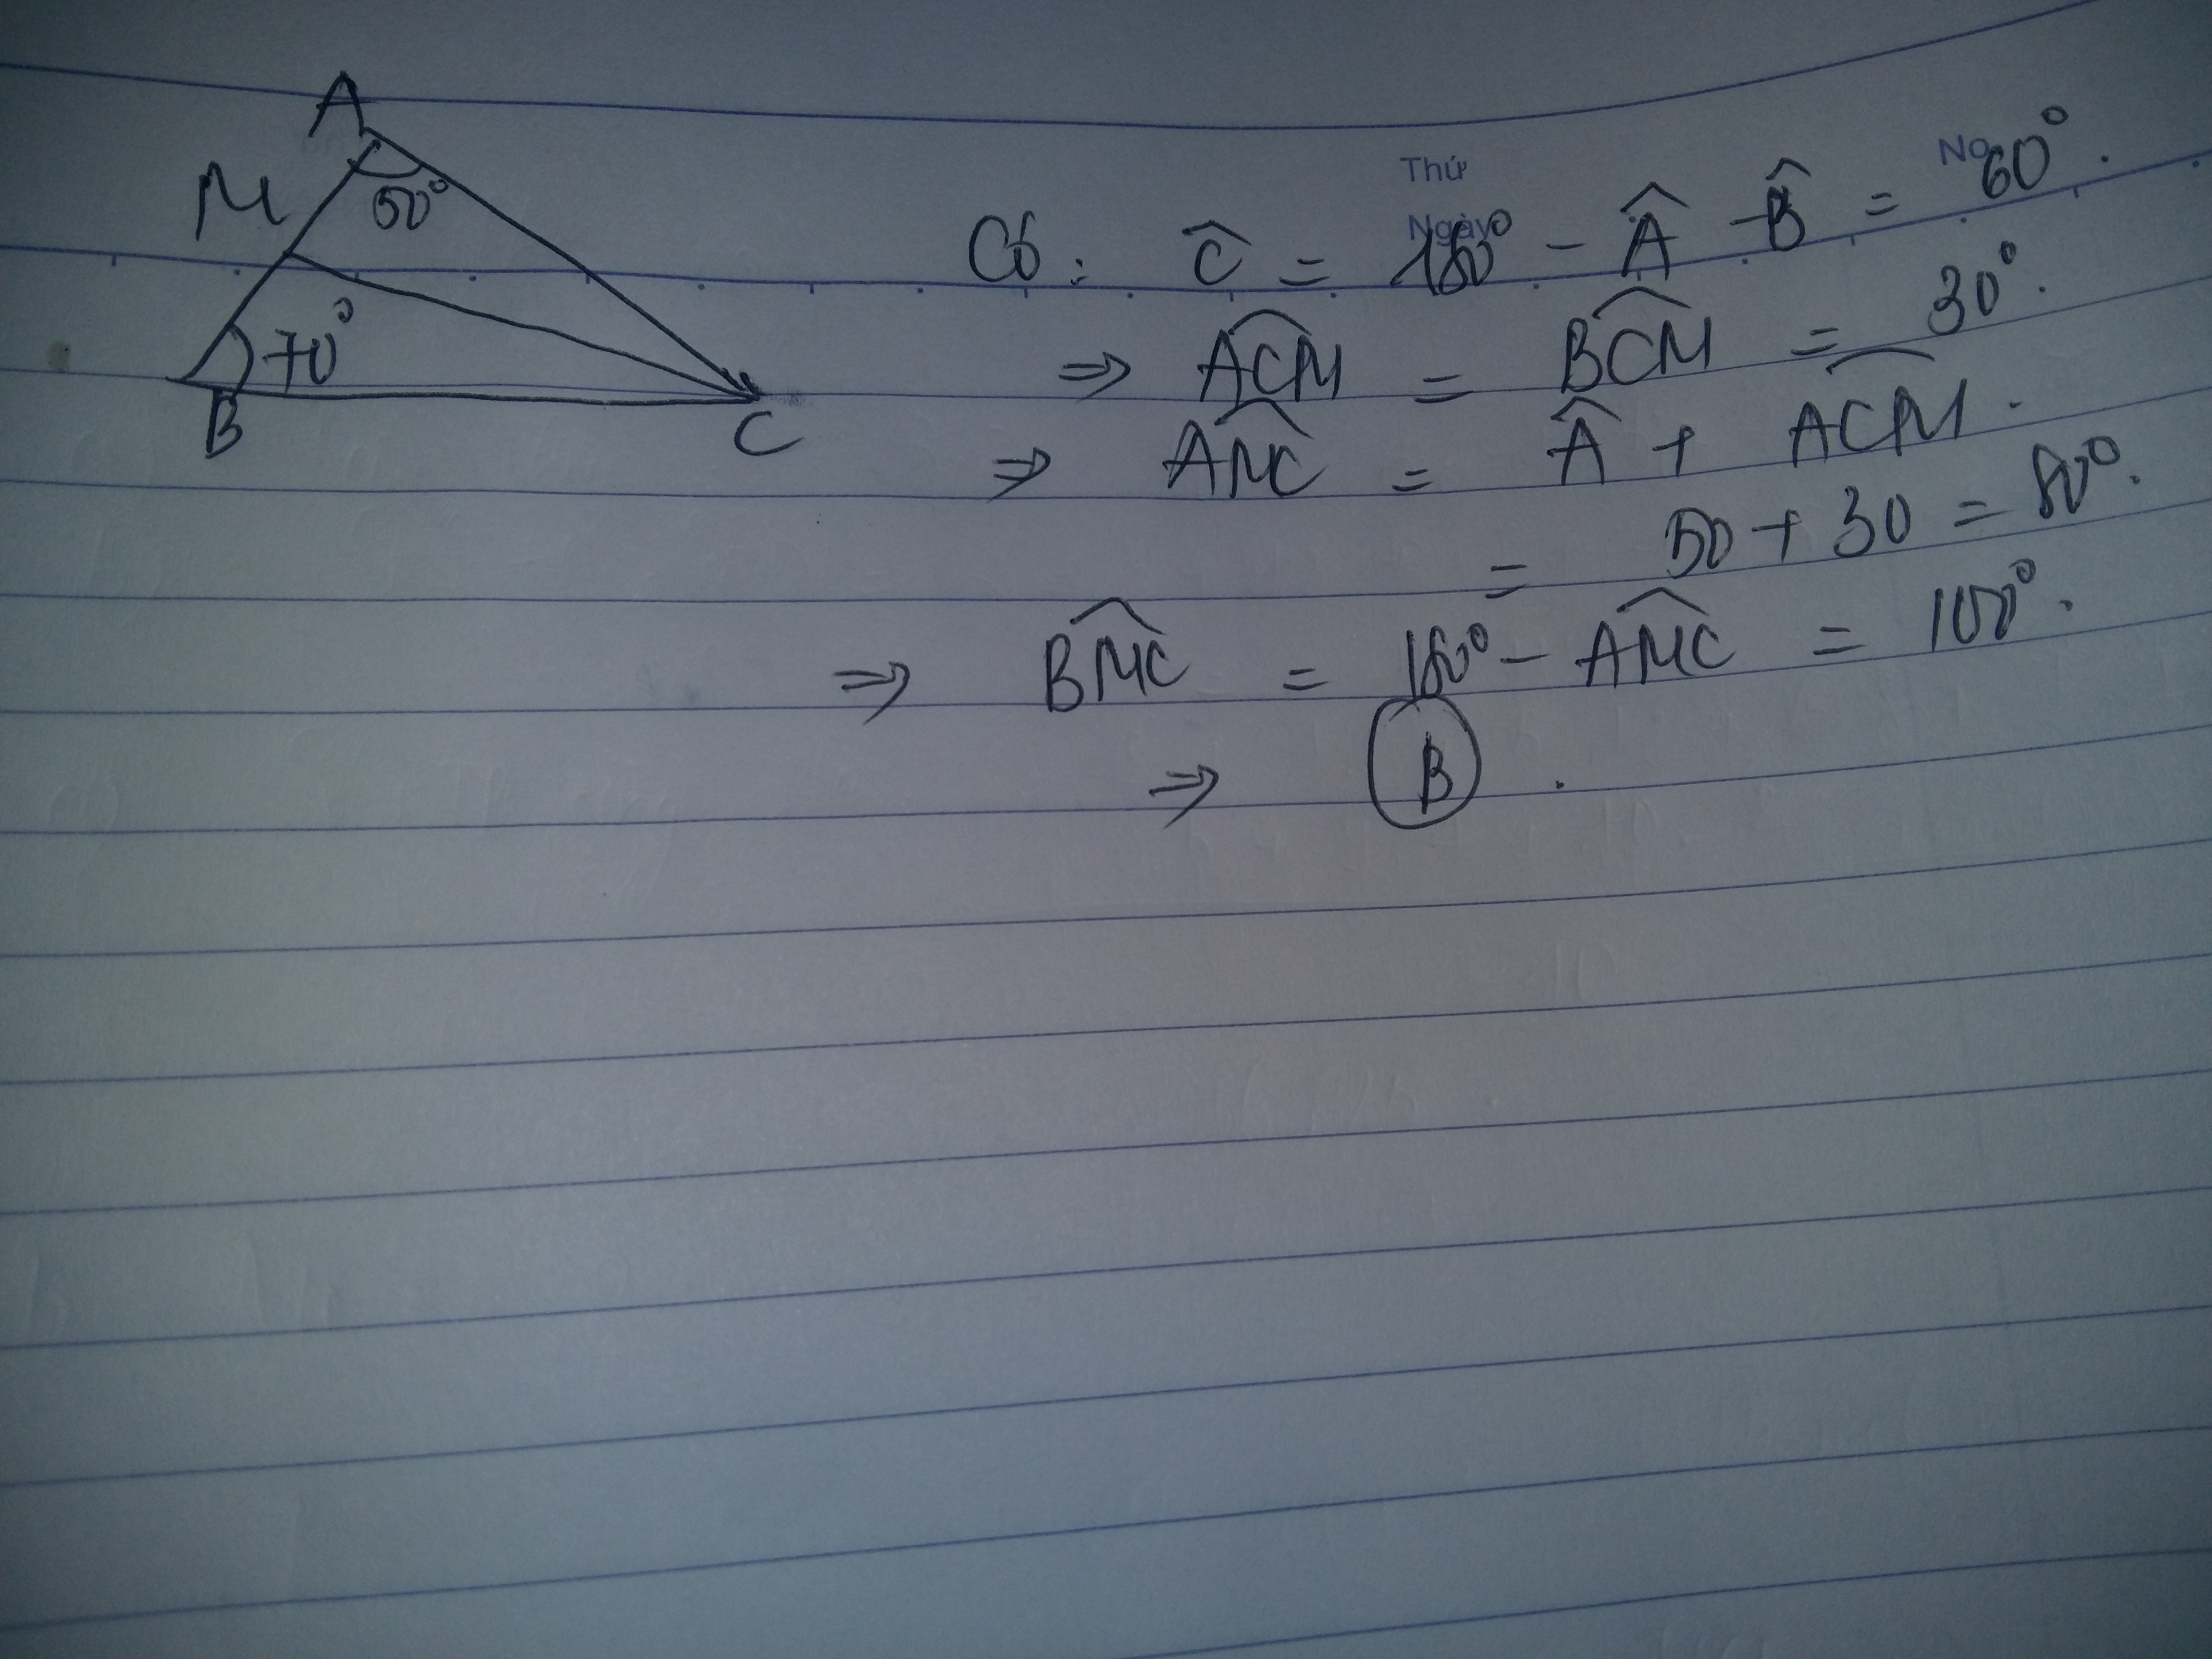 A
M
50°
70°
B
C
Thứ
Ngày
No
Có: Ĉ = 180° - Â - B̂ = 60°.
⇒ \widehat{ACM} = \widehat{BCM} = 30°.
⇒ \widehat{AMC} = Â + \widehat{ACM}.
= 50 + 30 = 80°.
⇒ \widehat{BMC} = 180° - \widehat{AMC} = 100°.
⇒ B.